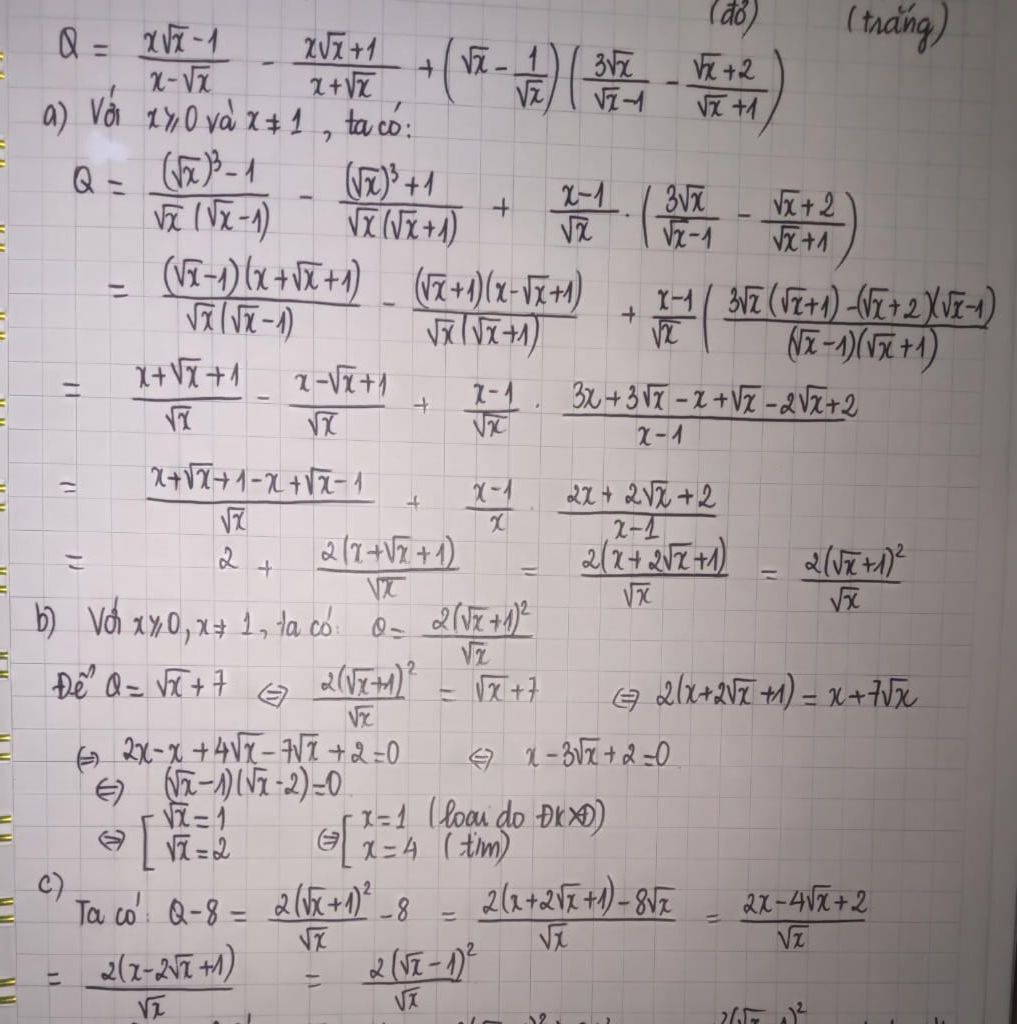 (đỏ) (trắng)
Q = (x√x - 1)/(x - √x) - (x√x + 1)/(x + √x) + (√x - 1/√x)(3√x/(√x - 1) - (√x + 2)/(√x + 1))
a) Với x ⩾ 0 và x ≠ 1, ta có:
Q = ((√x)³ - 1)/(√x(√x - 1)) - ((√x)³ + 1)/(√x(√x + 1)) + (x - 1)/√x . (3√x/(√x - 1) - (√x + 2)/(√x + 1))
= ((√x - 1)(x + √x + 1))/(√x(√x - 1)) - ((√x + 1)(x - √x + 1))/(√x(√x + 1)) + (x - 1)/√x ((3√x(√x + 1) - (√x + 2)(√x - 1))/((√x - 1)(√x + 1))
= (x + √x + 1)/√x - (x - √x + 1)/√x + (x - 1)/√x . (3x + 3√x - x + √x - 2√x + 2)/(x - 1)
= (x + √x + 1 - x + √x - 1)/√x + (x - 1)/x . (2x + 2√x + 2)/(x - 1)
= 2 + 2(x + √x + 1)/√x = 2(x + 2√x + 1)/√x = 2(√x + 1)²/√x
b) Với x ⩾ 0, x ≠ 1, ta có: Q = 2(√x + 1)²/√x
Để Q = √x + 7 ⇔ 2(√x + 1)²/√x = √x + 7 ⇔ 2(x + 2√x + 1) = x + 7√x
⇔ 2x - x + 4√x - 7√x + 2 = 0 ⇔ x - 3√x + 2 = 0
⇔ (√x - 1)(√x - 2) = 0
⇔ [ √x = 1 ⇔ [ x = 1 (loại do ĐKXĐ)
√x = 2 x = 4 (t/m)
c)
Ta có: Q - 8 = 2(√x + 1)²/√x - 8 = (2(x + 2√x + 1) - 8√x)/√x = (2x - 4√x + 2)/√x
= 2(x - 2√x + 1)/√x = 2(√x - 1)²/√x